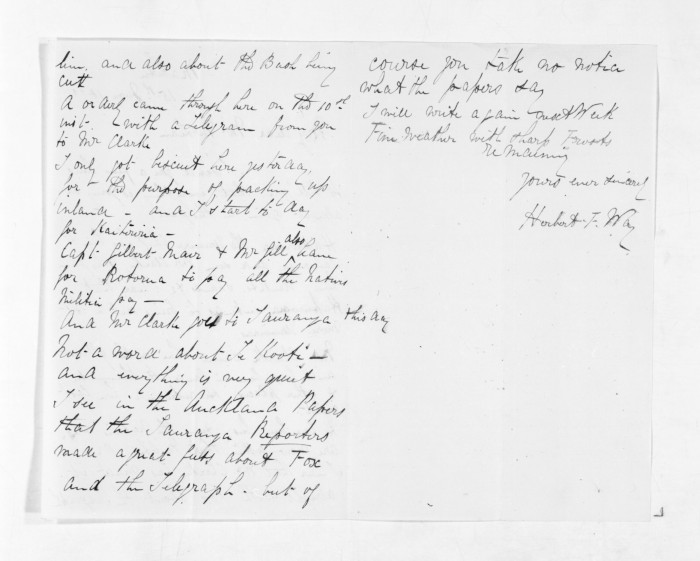 him, and also about the Bush being
cut
A orderl came through here on the 10th
inst - with a Telegram from you
to Mr Clarke
I only got biscuit here yesterday
for the purpose of packing up
inland - and I start to day
for Kaiteriria -
Capt Gilbert Mair & Mr Gill also leave
for Rotorua to pay all the Natives
Militia pay -
And Mr Clarke goes to Tauranga this day
Not a word about Te Kooti -
and everything is very quiet
I see in the Auckland Papers
that the Tauranga Reporters
made a great fuss about Fox
and the Telegraph - but of
course you take no notice
what the papers say
I will write again next Week
Fine Weather with sharp Frosts
remaining
yours ever sincerely
Herbert F. Way